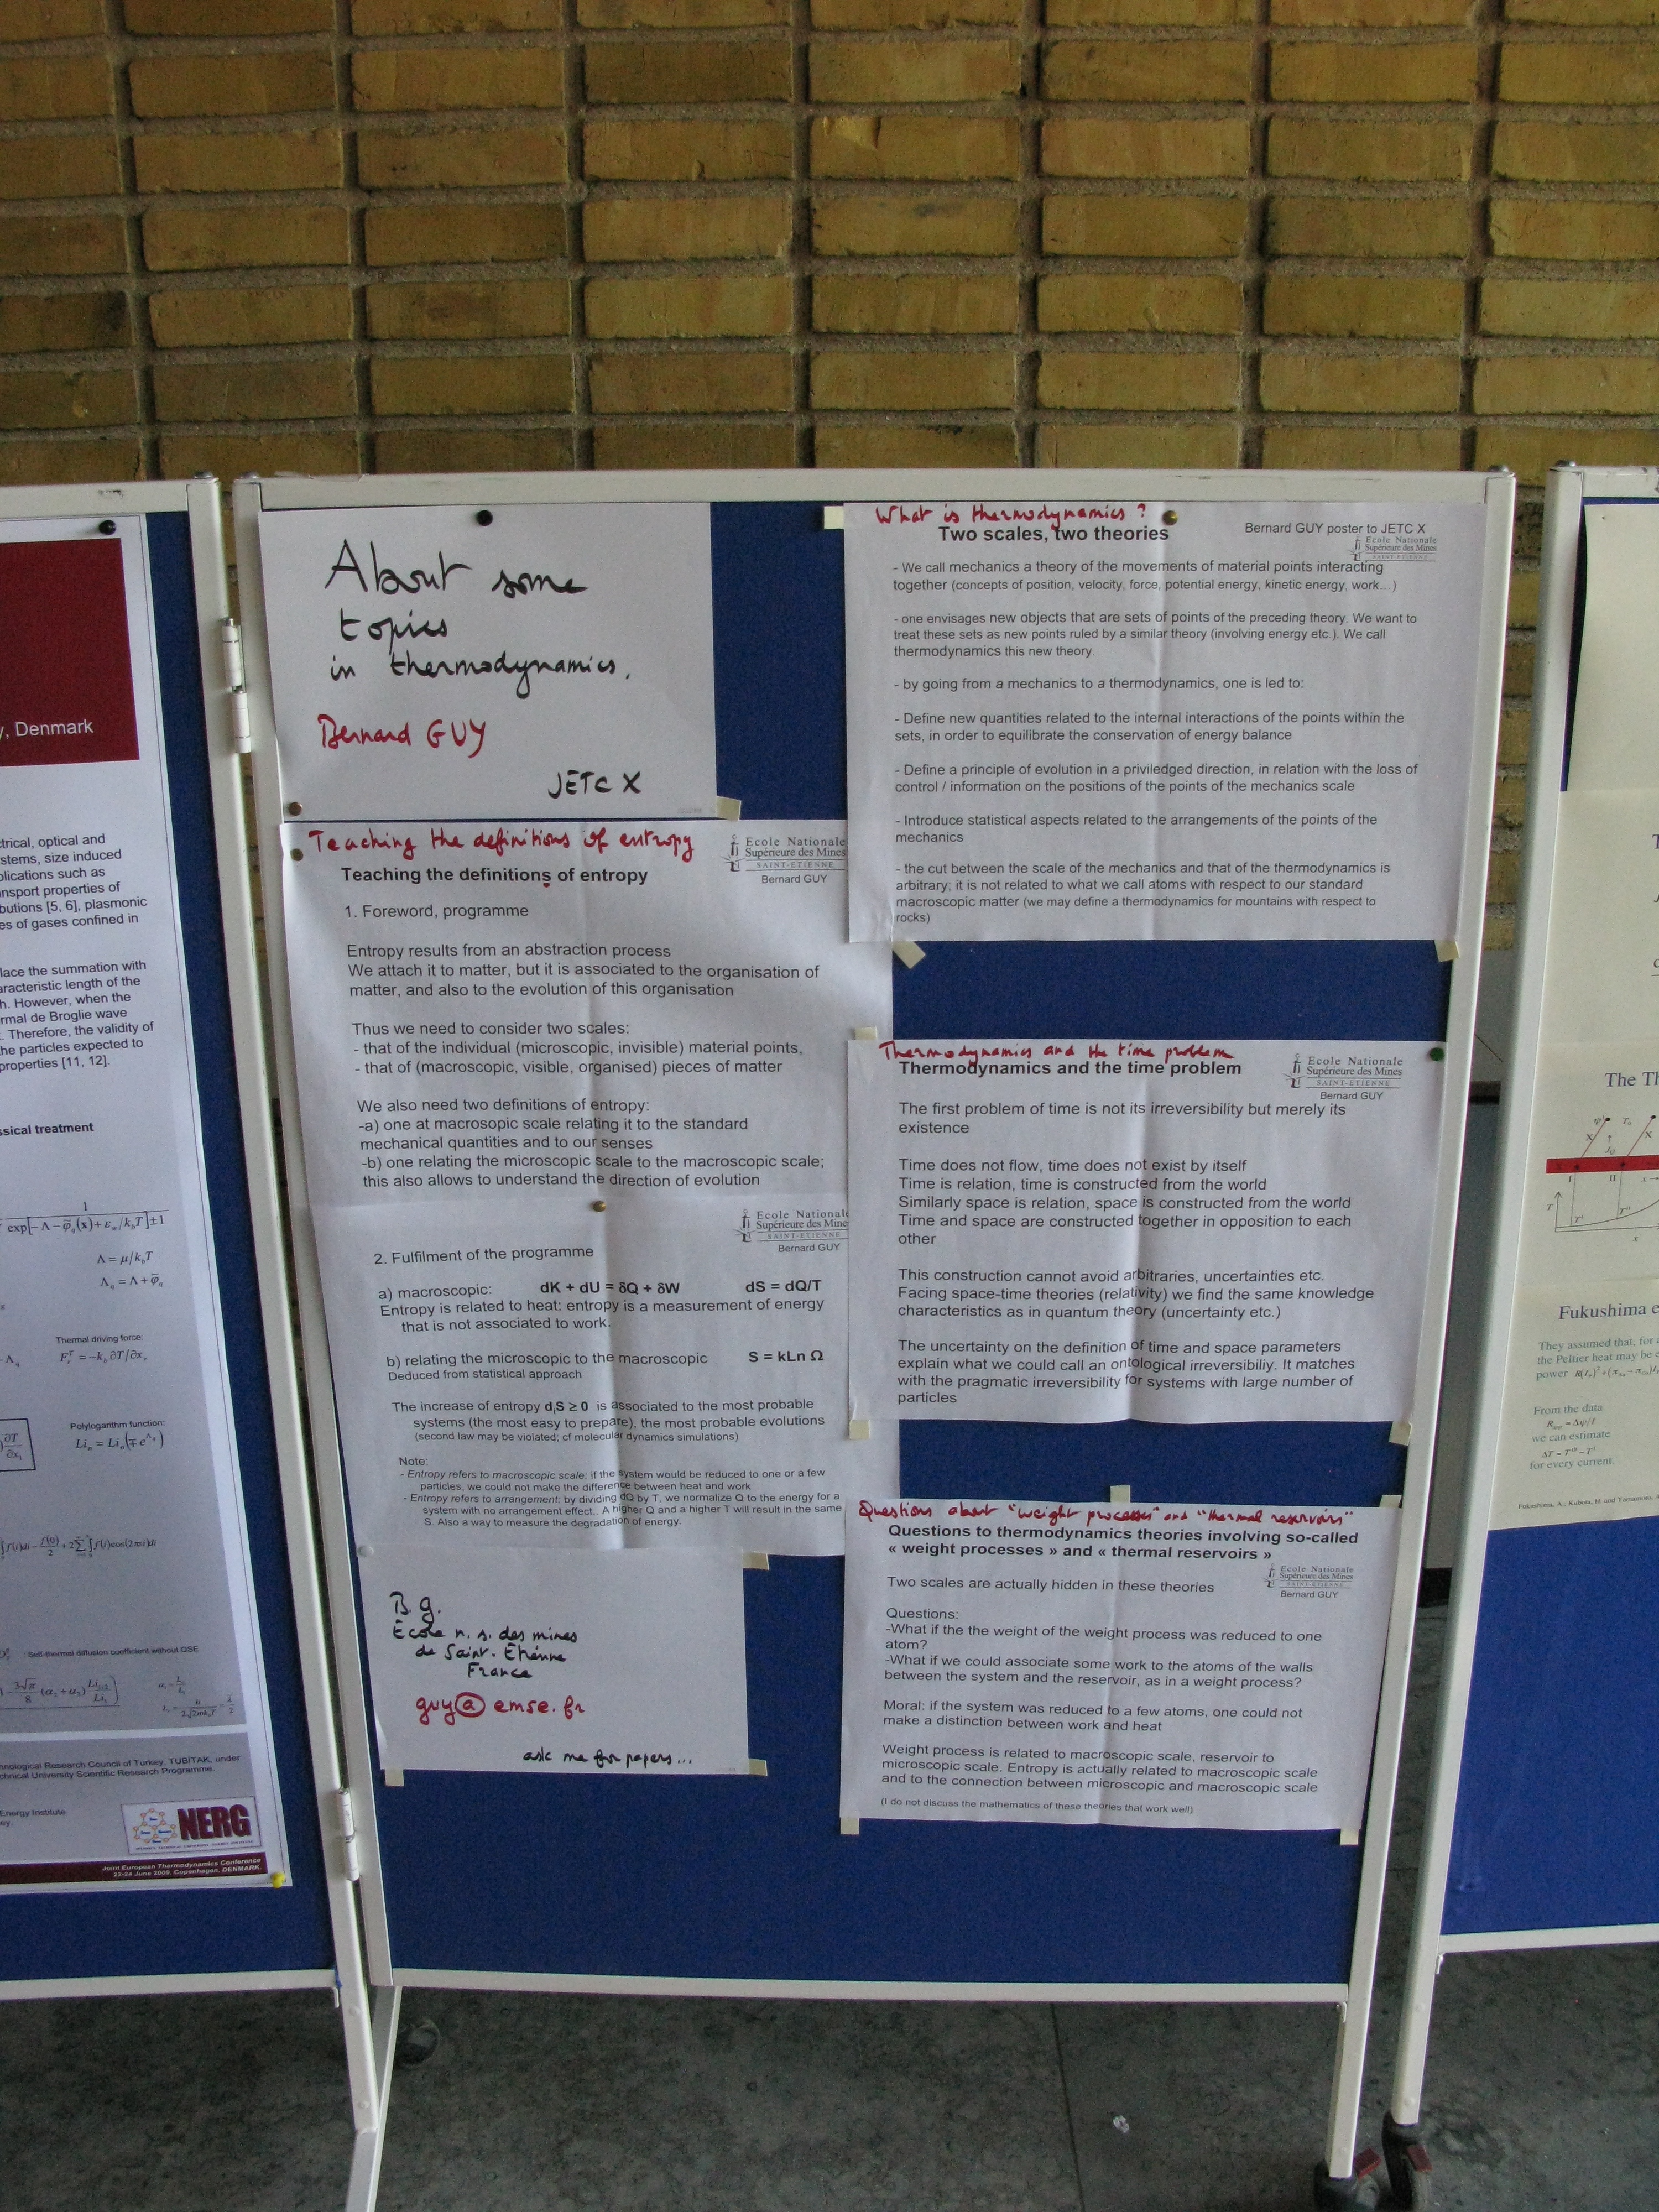 About some
topics
in thermodynamics.
Bernard GUY
JETC X
Teaching the definitions of entropy
Ecole Nationale
Supérieure des Mines
SAINT-ETIENNE
Bernard GUY
Teaching the definitions of entropy
1. Foreword, programme
Entropy results from an abstraction process
We attach it to matter, but it is associated to the organisation of
matter, and also to the evolution of this organisation
Thus we need to consider two scales:
- that of the individual (microscopic, invisible) material points,
- that of (macroscopic, visible, organised) pieces of matter
We also need two definitions of entropy:
-a) one at macrosopic scale relating it to the standard
mechanical quantities and to our senses
-b) one relating the microscopic scale to the macroscopic scale;
this also allows to understand the direction of evolution
Ecole Nationale
Supérieure des Mines
SAINT-ETIENNE
Bernard GUY
2. Fulfilment of the programme
a) macroscopic: dK + dU = δQ + δW dS = dQ/T
Entropy is related to heat: entropy is a measurement of energy
that is not associated to work.
b) relating the microscopic to the macroscopic S = kLn Ω
Deduced from statistical approach
The increase of entropy dᵢS ≥ 0 is associated to the most probable
systems (the most easy to prepare), the most probable evolutions
(second law may be violated; cf molecular dynamics simulations)
Note:
- Entropy refers to macroscopic scale: if the system would be reduced to one or a few
particles, we could not make the difference between heat and work
- Entropy refers to arrangement: by dividing dQ by T, we normalize Q to the energy for a
system with no arrangement effect.. A higher Q and a higher T will result in the same
S. Also a way to measure the degradation of energy.
B. g.
Ecole n. s. des mines
de Saint. Etienne
France
guy@emse.fr
ask me for papers...
What is thermodynamics ?
Two scales, two theories
Bernard GUY poster to JETC X
Ecole Nationale
Supérieure des Mines
SAINT-ETIENNE
- We call mechanics a theory of the movements of material points interacting
together (concepts of position, velocity, force, potential energy, kinetic energy, work…)
- one envisages new objects that are sets of points of the preceding theory. We want to
treat these sets as new points ruled by a similar theory (involving energy etc.). We call
thermodynamics this new theory.
- by going from a mechanics to a thermodynamics, one is led to:
- Define new quantities related to the internal interactions of the points within the
sets, in order to equilibrate the conservation of energy balance
- Define a principle of evolution in a priviledged direction, in relation with the loss of
control / information on the positions of the points of the mechanics scale
- Introduce statistical aspects related to the arrangements of the points of the
mechanics
- the cut between the scale of the mechanics and that of the thermodynamics is
arbitrary; it is not related to what we call atoms with respect to our standard
macroscopic matter (we may define a thermodynamics for mountains with respect to
rocks)
Thermodynamics and the time problem
Thermodynamics and the time problem
Ecole Nationale
Supérieure des Mines
SAINT-ETIENNE
Bernard GUY
The first problem of time is not its irreversibility but merely its
existence
Time does not flow, time does not exist by itself
Time is relation, time is constructed from the world
Similarly space is relation, space is constructed from the world
Time and space are constructed together in opposition to each
other
This construction cannot avoid arbitraries, uncertainties etc.
Facing space-time theories (relativity) we find the same knowledge
characteristics as in quantum theory (uncertainty etc.)
The uncertainty on the definition of time and space parameters
explain what we could call an ontological irreversibiliy. It matches
with the pragmatic irreversibility for systems with large number of
particles
Questions about "weight processes" and "thermal reservoirs"
Questions to thermodynamics theories involving so-called
« weight processes » and « thermal reservoirs »
Ecole Nationale
Supérieure des Mines
SAINT-ETIENNE
Bernard GUY
Two scales are actually hidden in these theories
Questions:
-What if the the weight of the weight process was reduced to one
atom?
-What if we could associate some work to the atoms of the walls
between the system and the reservoir, as in a weight process?
Moral: if the system was reduced to a few atoms, one could not
make a distinction between work and heat
Weight process is related to macroscopic scale, reservoir to
microscopic scale. Entropy is actually related to macroscopic scale
and to the connection between microscopic and macroscopic scale
(I do not discuss the mathematics of these theories that work well)
, Denmark
trical, optical and
stems, size induced
plications such as
ansport properties of
butions [5, 6], plasmonic
es of gases confined in
lace the summation with
aracteristic length of the
h. However, when the
rmal de Broglie wave
. Therefore, the validity of
he particles expected to
properties [11, 12].
ssical treatment
Λ = μ/k_bT
Thermal driving force:
Polylogarithm function:
Self-thermal diffusion coefficient without QSE
hnological Research Council of Turkey, TUBİTAK, under
chnical University Scientific Research Programme.
Energy Institute
NERG
Joint European Thermodynamics Conference
22-24 June 2009, Copenhagen, DENMARK.
The Th
Fukushima e
They assumed that, for a
the Peltier heat may be e
power
From the data
we can estimate
for every current.
Fukushima, A.; Kubota, H. and Yamamoto, A